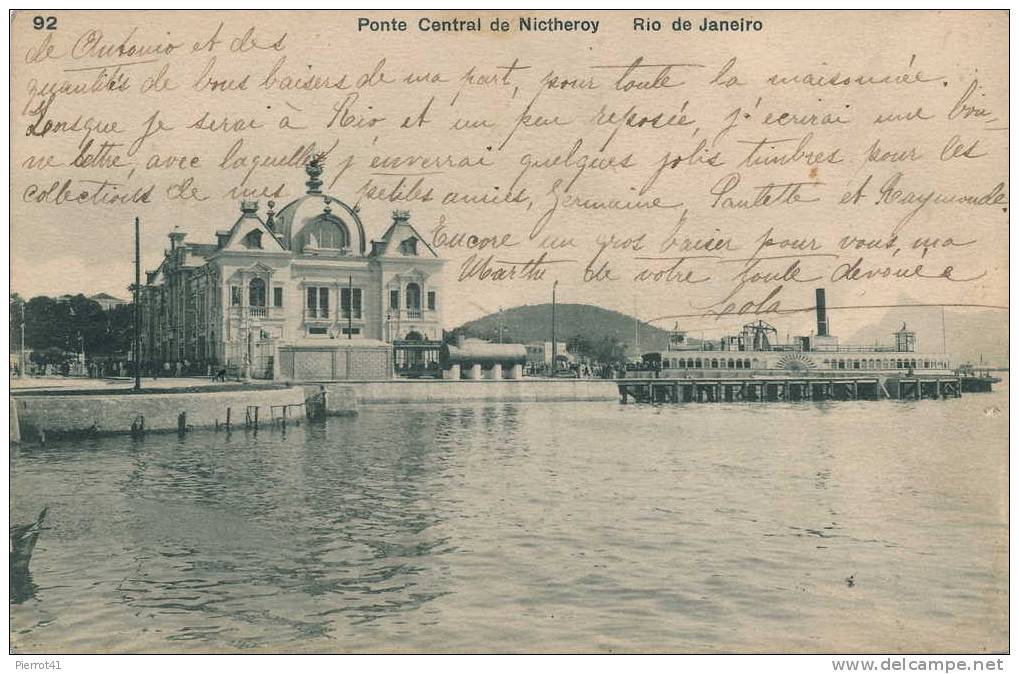 92 Ponte Central de Nictheroy Rio de Janeiro
de Antonio et des
quantités de bons baisers de ma part, pour toute la maisonnée.
Lorsque je serai à Rio et un peu reposée, j'écrirai une bon-
ne lettre, avec laquelle j'enverrai quelques jolis timbres pour les
collections de mes petites amies, Germaine, Paulette et Raymonde.
Encore un gros baiser pour vous, ma
Marthe de votre toute dévouée
Lola
Pierrot41
www.delcampe.net